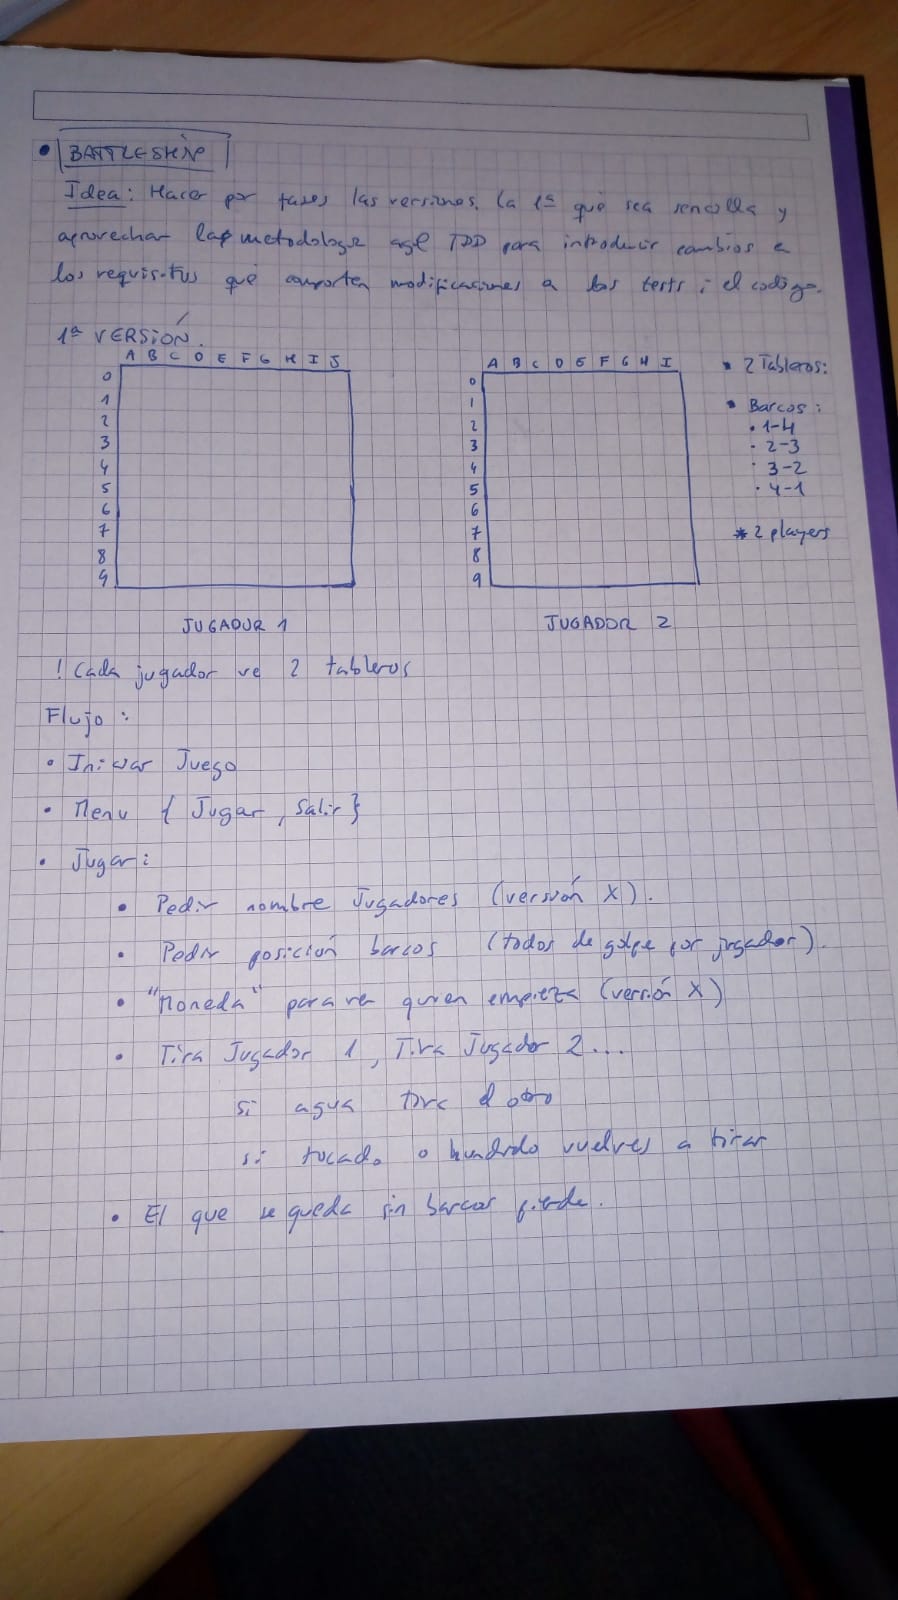 • BATTLESHIP
Idea: Hacer por fases las versiones. La 1ª que sea sencilla y
aprovechar la metodologia agil TDD para introducir cambios a
los requisitos que comporten modificaciones a los tests i el codigo.
1ª VERSIÓN.
A B C D E F G H I J
0
1
2
3
4
5
6
7
8
9
JUGADOR 1
A B C D E F G H I
0
1
2
3
4
5
6
7
8
9
JUGADOR 2
• 2 Tableros:
• Barcos:
• 1-4
• 2-3
• 3-2
• 4-1
* 2 players
! Cada jugador ve 2 tableros
Flujo:
• Iniciar Juego
• Menu { Jugar, Salir }
• Jugar:
• Pedir nombre Jugadores (versión X).
• Pedir posición barcos (todos de golpe por jugador).
• "Moneda" para ver quien empieza (versión X)
• Tira Jugador 1, Tira Jugador 2...
si agua tira el otro
si tocado o hundido vuelves a tirar
• El que se queda sin barcos pierde.